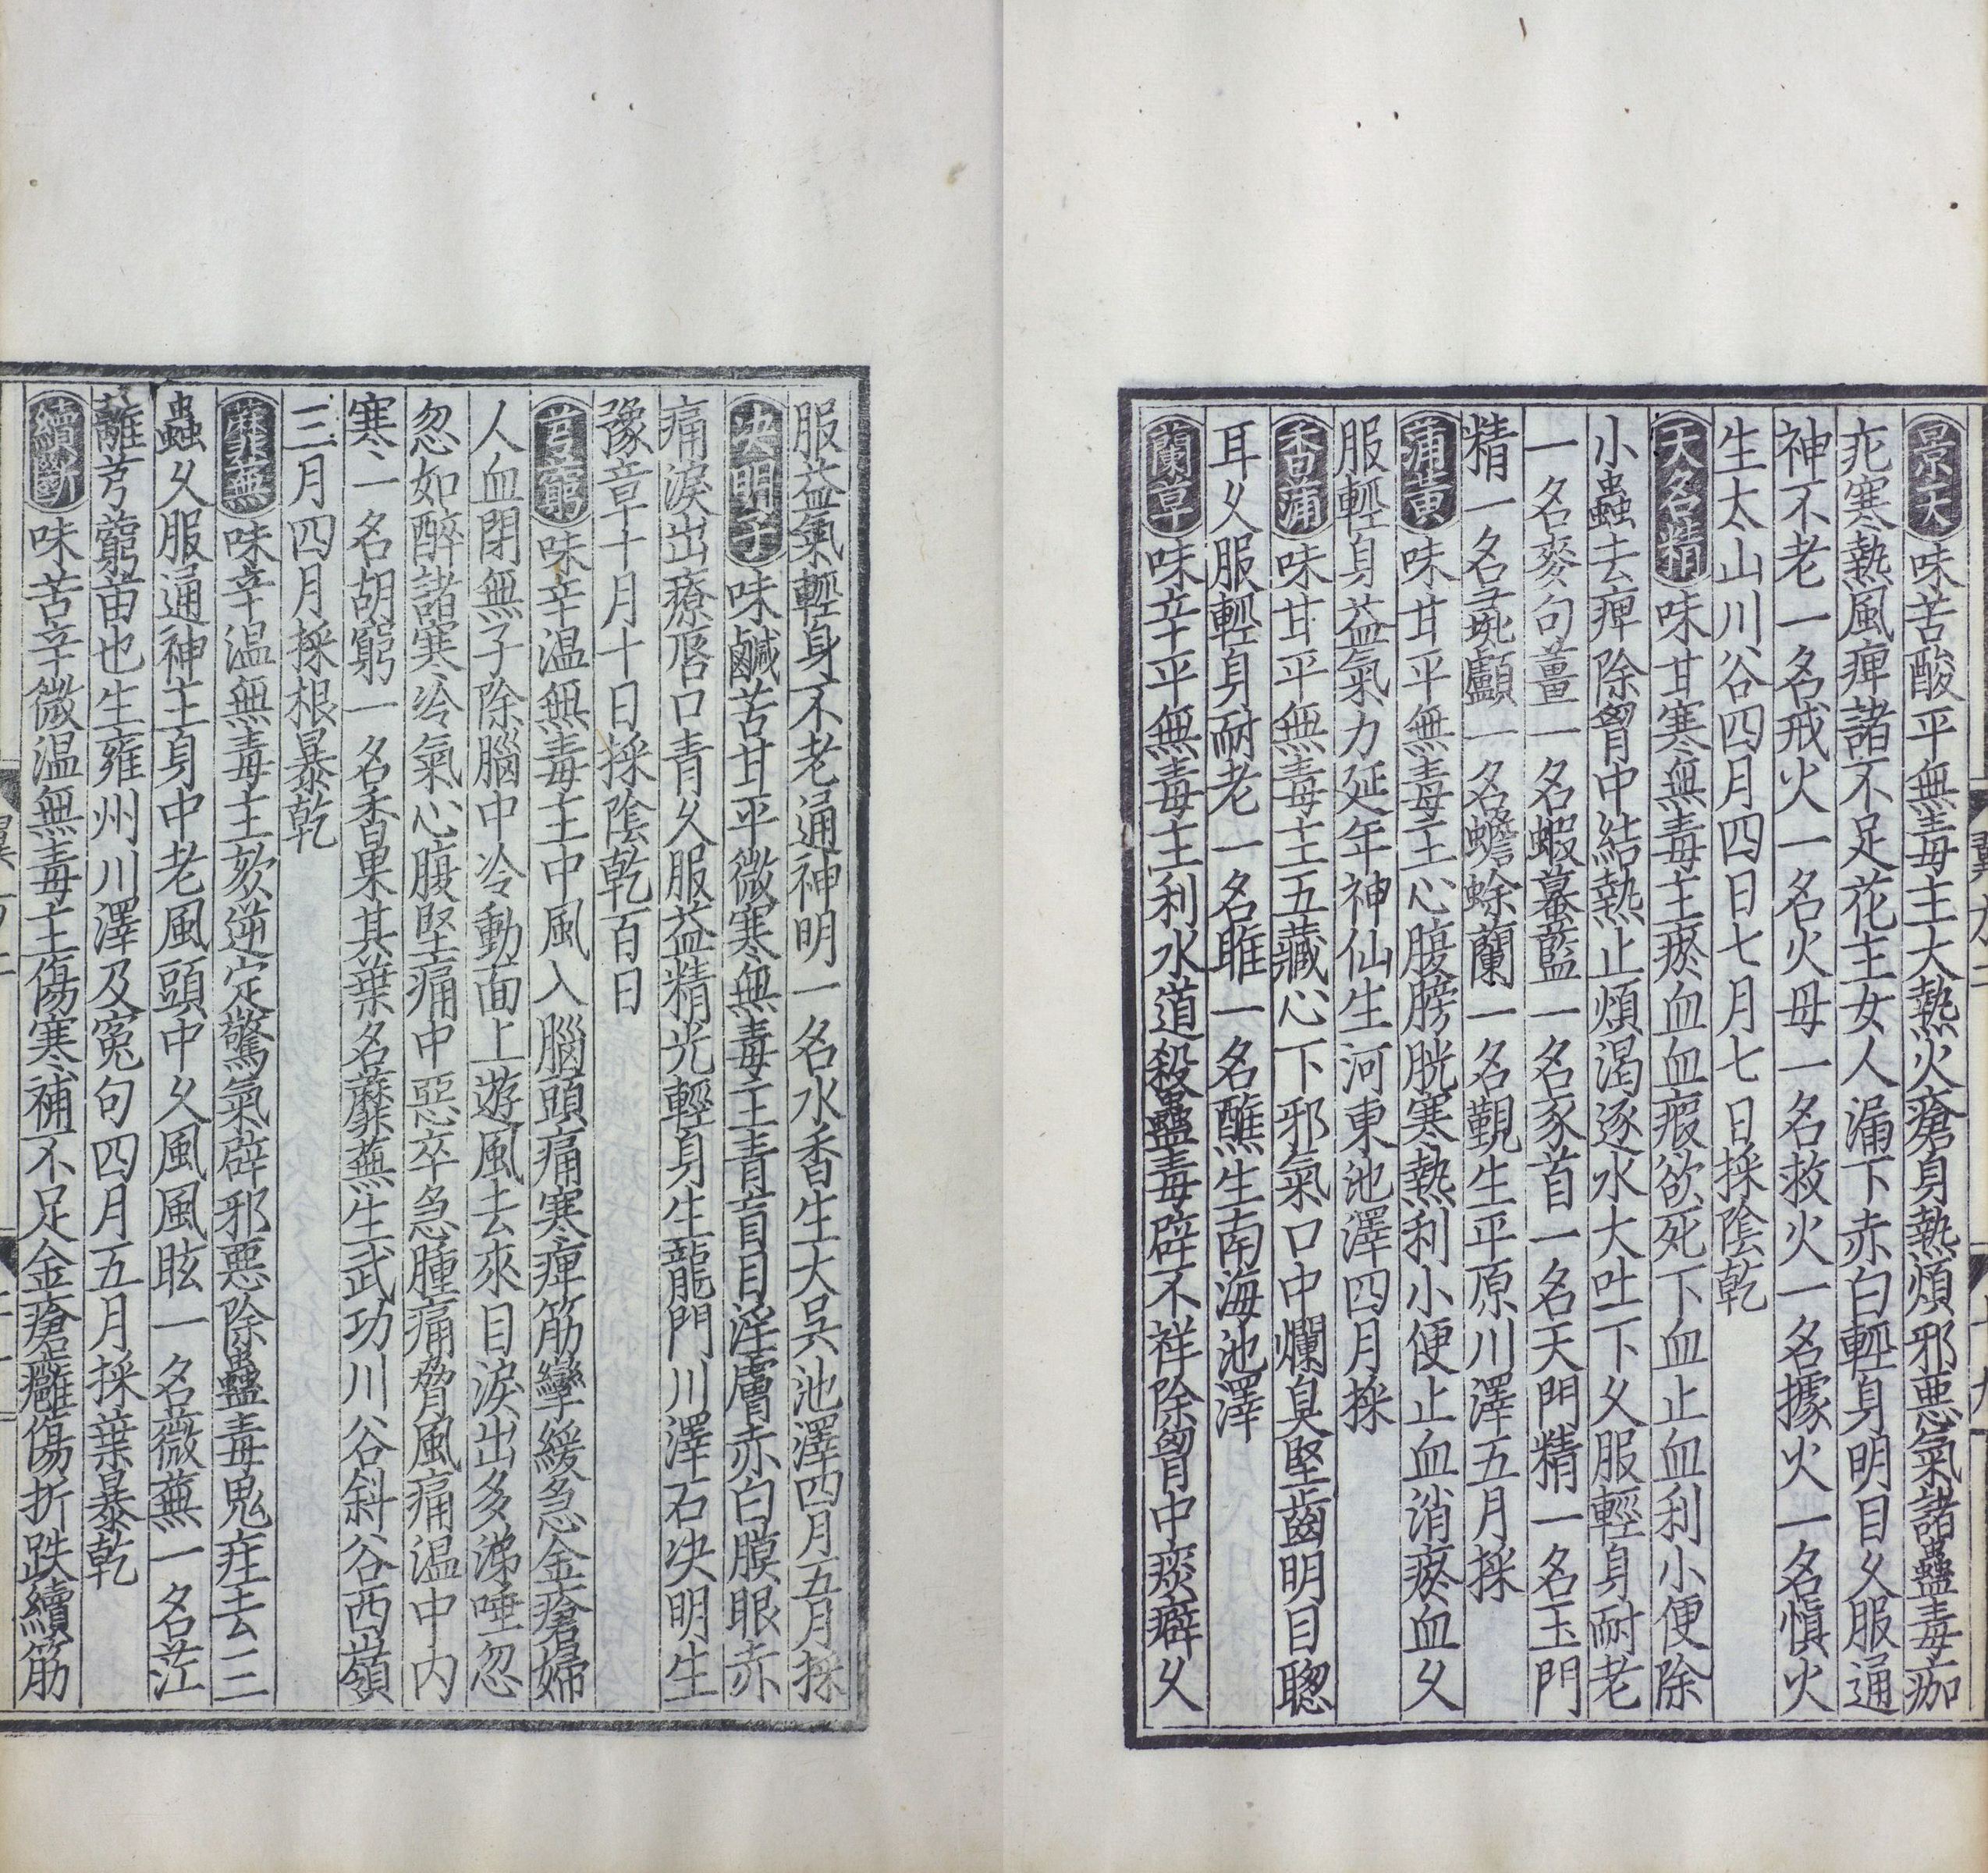 景天味苦酸平無毒主大熱火瘡身熱煩邪惡氣諸蠱毒痂
疕寒熱風痺諸不足花主女人漏下赤白輕身明目久服通
神不老一名戒火一名火母一名救火一名據火一名慎火
生太山川谷四月四日七月七日採陰乾
天名精味甘寒無毒主瘀血血瘕欲死下血止血利小便除
小蟲去痺除胷中結熱止煩渴逐水大吐下久服輕身耐老
一名麥句薑一名蝦蟇藍一名豕首一名天門精一名玉門
精一名彘顱一名蟾蜍蘭一名覲生平原川澤五月採
蒲黃味甘平無毒主心腹膀胱寒熱利小便止血消瘀血久
服輕身益氣力延年神仙生河東池澤四月採
香蒲味甘平無毒主五藏心下邪氣口中爛臭堅齒明目聦
耳久服輕身耐老一名睢一名醮生南海池澤
蘭草味辛平無毒主利水道殺蠱毒辟不祥除胷中痰癖久
服益氣輕身不老通神明一名水香生大吳池澤四月五月採
决明子味鹹苦甘平微寒無毒主青盲目淫膚赤白膜眼赤
痛淚出療唇口青久服益精光輕身生龍門川澤石决明生
豫章十月十日採陰乾百日
芎藭味辛温無毒主中風入腦頭痛寒痺筋攣緩急金瘡婦
人血閉無子除腦中冷動面上遊風去來目淚出多涕唾忽
忽如醉諸寒冷氣心腹堅痛中惡卒急腫痛脅風痛温中内
寒一名胡窮一名香果其葉名蘼蕪生武功川谷斜谷西嶺
三月四月採根暴乾
蘼蕪味辛温無毒主欬逆定驚氣辟邪惡除蠱毒鬼疰去三
蟲久服通神主身中老風頭中久風風眩一名薇蕪一名茳
蘺芎藭苗也生雍州川澤及寃句四月五月採葉暴乾
續斷味苦辛微温無毒主傷寒補不足金瘡癰傷折跌續筋